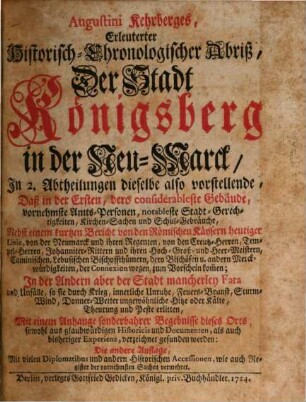 Augustini Kehrberges,
Erleuterter
Historisch-Chronologischer Abriß,
Der Stadt
Königsberg
in der Neu-Marck,
In 2. Abtheilungen dieselbe also vorstellende,
Daß in der Ersten, ders considerableste Gebäude,
vornehmste Amts-Personen, notableste Stadt-Gerech-
tigkeiten, Kirchen-Sachen und Schul-Gebräuche,
Nebst einem kurtzen Bericht von den Römischen Käysern heutiger
Linie, von der Neumarck und ihren Regenten, von den Creutz-Herren, Tem-
pel-Herren, Johanniter-Rittern und ihren Hoch-Groß- und Heer-Meistern,
Caminischen, Lebusischen Bischoffthümern, dern Bischöfen u. andern Merck-
würdigkeiten, der Connexion wegen, zum Vorschein kommen;
In der Andern aber der Stadt mancherley Fata
und Unfälle, so sie durch Krieg, innerliche Unruhe, Feuers-Brunst, Sturm-
Wind, Donner-Wetter ungewöhnliche Hitze oder Kälte,
Theurung und Peste erlitten,
Mit einem Anhange sonderbahrer Begebnisse dieses Orts
sowohl aus glaubwürdigen Historicis und Documenten, als auch
bißheriger Experienz, verzeichnet gefunden werden:
Die andere Auflage,
Mit vielen Diplomatibus und andern Historischen Accessionen, wie auch Re-
gister der vornehmsten Sachen vermehret.
Berlin, verlegts Gottfried Gedicken, Königl. priv. Buchhändler. 1724.